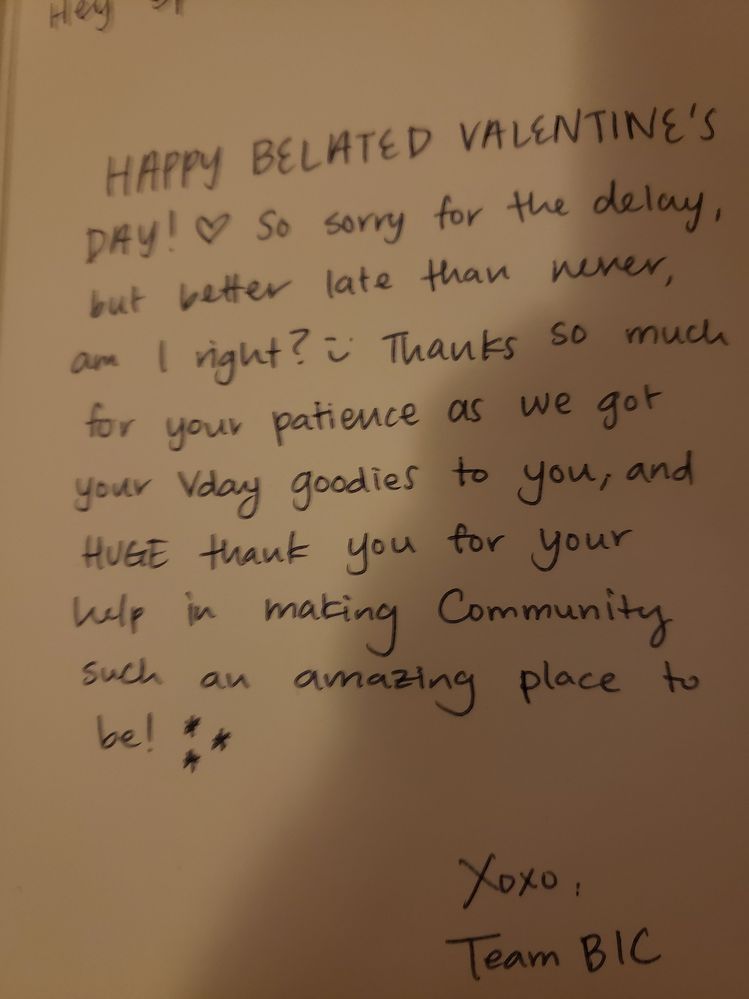 Hey
HAPPY BELATED VALENTINE'S
DAY! ♡ So sorry for the delay,
but better late than never,
am I right? :) Thanks so much
for your patience as we got
your Vday goodies to you, and
HUGE thank you for your
help in making Community
such an amazing place to
be! ***
Xoxo,
Team BIC